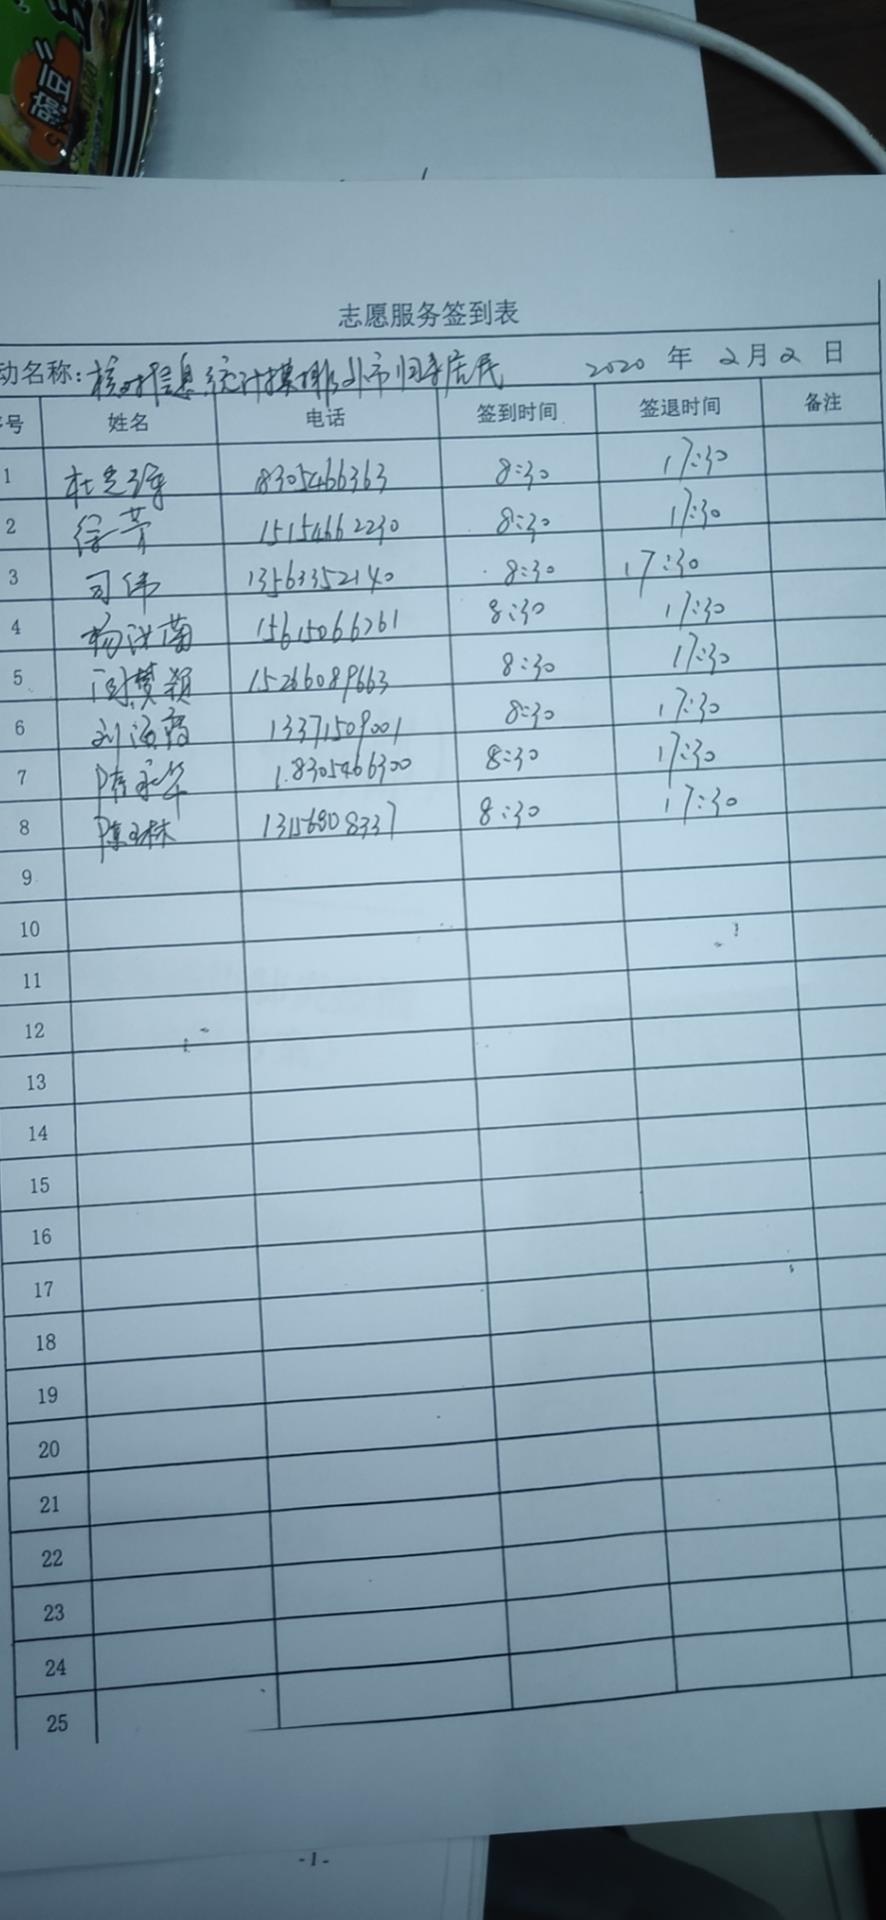 志愿服务签到表
动名称: 核对信息统计摸排外市归来居民 2020 年 2 月 2 日
号 姓名 电话 签到时间 签退时间 备注
1 杜 8305466363 8:30 17:30
2 徐芳 15154662230 8:30 17:30
3 司伟 13563352140 8:30 17:30
4 杨洪菊 15615066761 8:30 17:30
5 颖 15266089663 8:30 17:30
6 刘海 13371509001 8:30 17:30
7 陈永华 1.8305466300 8:30 17:30
8 陈玉林 13156808337 8:30 17:30
9
10
11
12
13
14
15
16
17
18
19
20
21
22
23
24
25
-1-